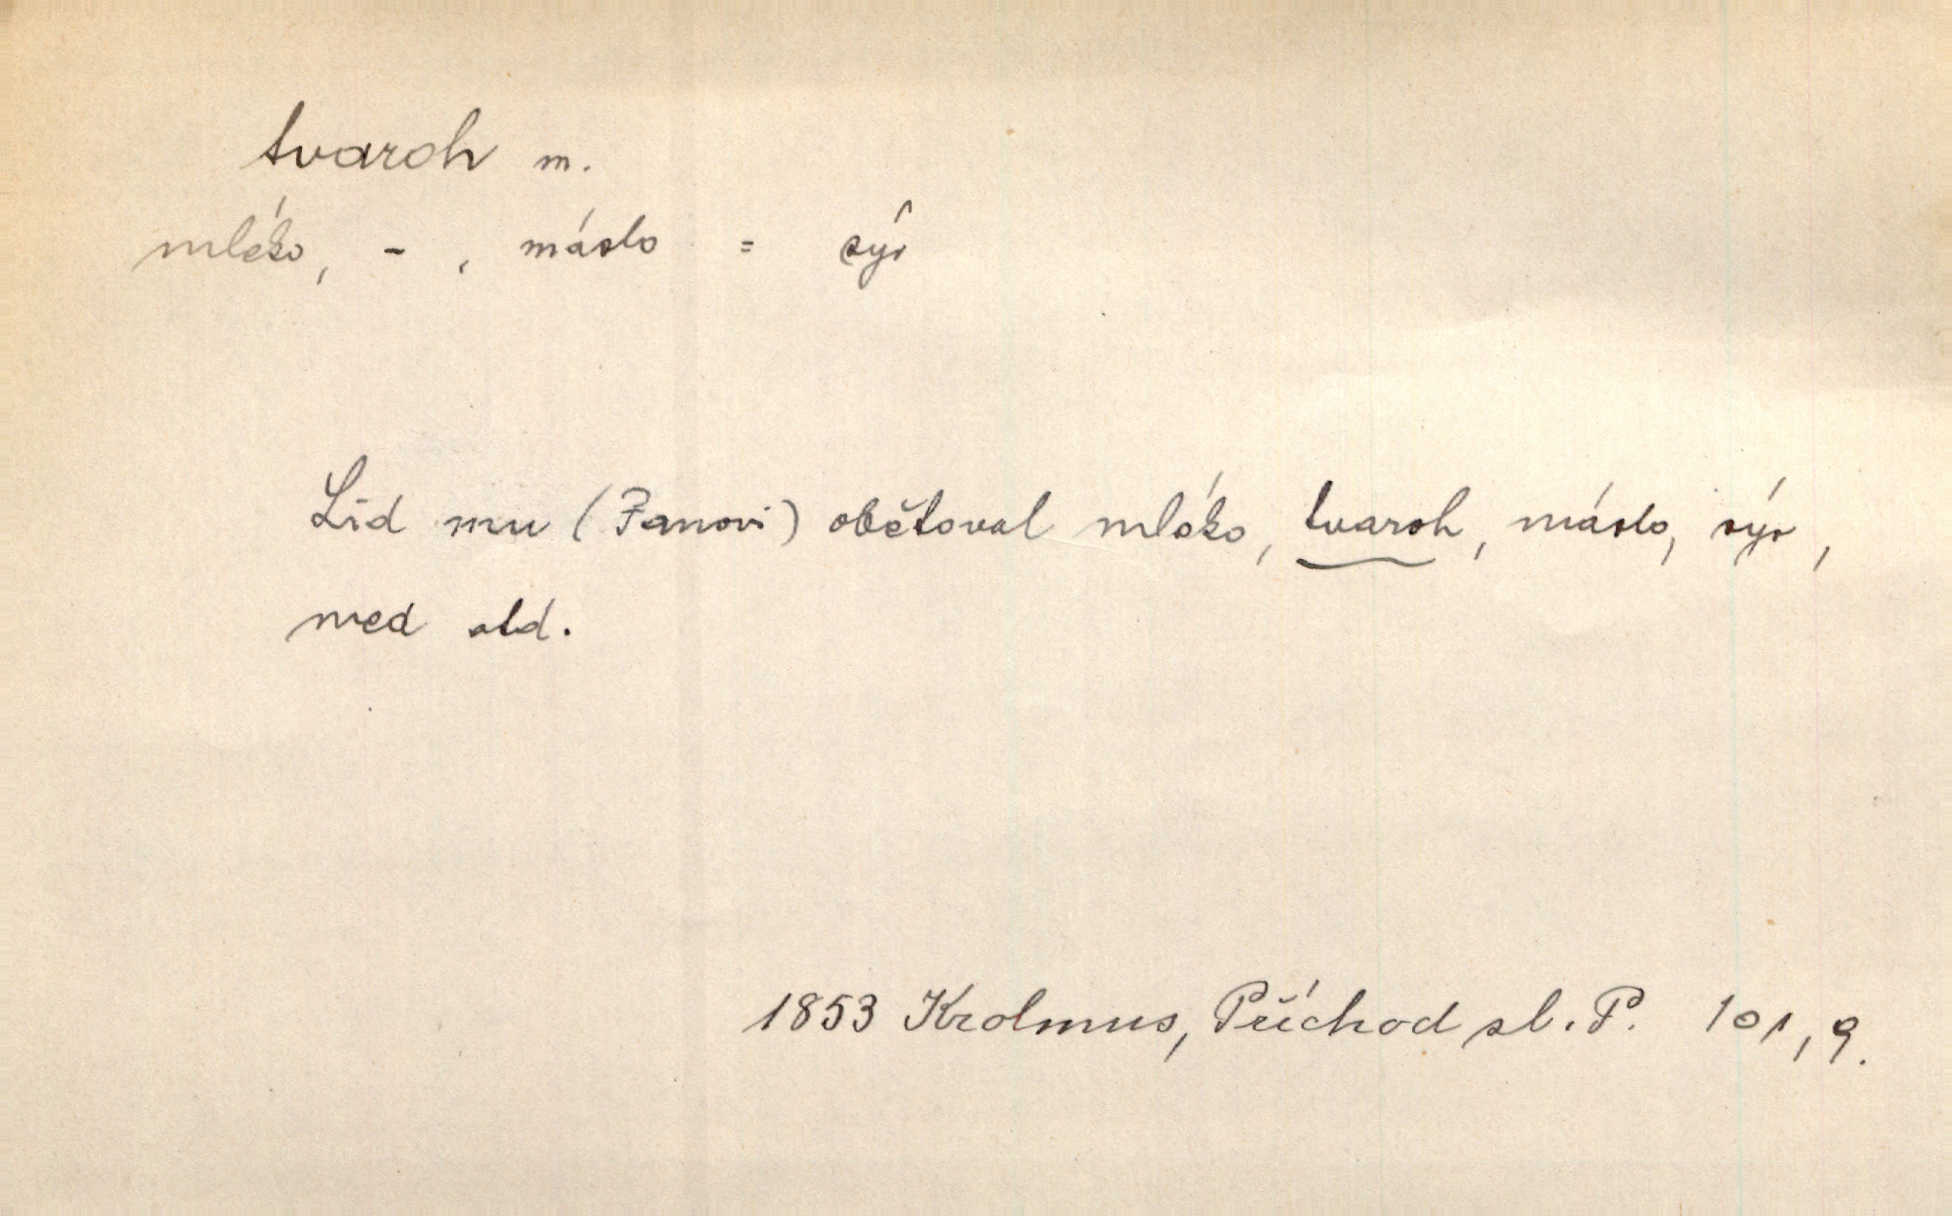 tvaroh m.
mléko, - , máslo = sýr
Lid mu (Panovi) obětoval mléko, tvaroh, máslo, sýr,
med atd.
1853 Krolmus, Příchod sl. P. 101, 9.